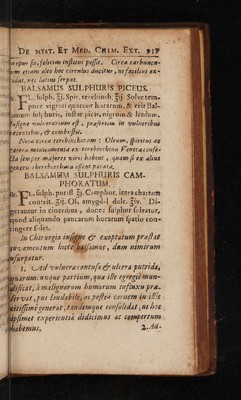 DE MYST. ET MED. CHIM. EXT. 917
opus sit, felicem instans possit. Circa carbuncu-
lum etiam oleo hoc circulus ducitur, ne facilius ex-
cedat, nec latius serpat.
BALSAMUS SULPHURIS PICEUS.
Fl. sulph. ℥j. Spir. terebinth. ℥ij. Solve tem-
pore viginti quatuor horarum, & erit Bal-
samum sulphuris, instar picis, nigrum & lentum.
in vulneribus
recentibus, & combustis.
Nota circa terebinthinam: Oleum, spiritus aut
cætera medicamenta ex terebinthina Veneta confe-
cta semper majores vires habent, quam si ex alius
generis therebinthina essent parata.
BALSAMUM SULPHURIS CAM-
PHORATUM.
Flo. sulph. puriss. ℥j. Camphor. intra chartam
contrit. ℥ij. Ol. amygdal. dulc. ℥iv. Di-
gerantur in cineribus, donec sulphur solvatur,
quod aliquando paucarum horarum spatio con-
tingere solet.
In Chirurgia insigne & exoptatum præstat
juvamentum hicce balsamus, dum nimirum
usurpatur.
1. Ad vulnera contusa & ulcera putrida,
quarumcunque partium, quæ ille egregiè mun-
dificat, à malignorum humorum influxu præ-
servat, pus laudabile, ac postea carnem in illis
citissimè generat, tandemque consolidat, ut hoc
ipsimet experientiâ didicimus ac compertum
habemus.
2. Ad-